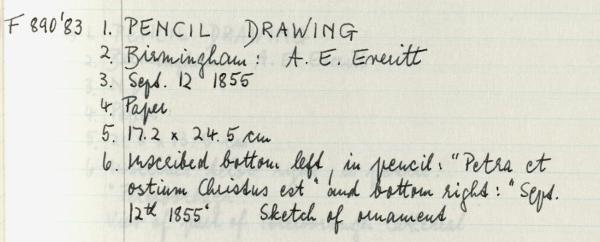 F 890'83 1. PENCIL DRAWING
2. Birmingham: A. E. Everitt
3. Sept. 12 1855
4. Paper
5. 17.2 x 24.5 cm
6. Inscribed bottom left, in pencil: "Petra et
ostium Christus est" and bottom right: "Sept.
12th 1855" Sketch of ornament